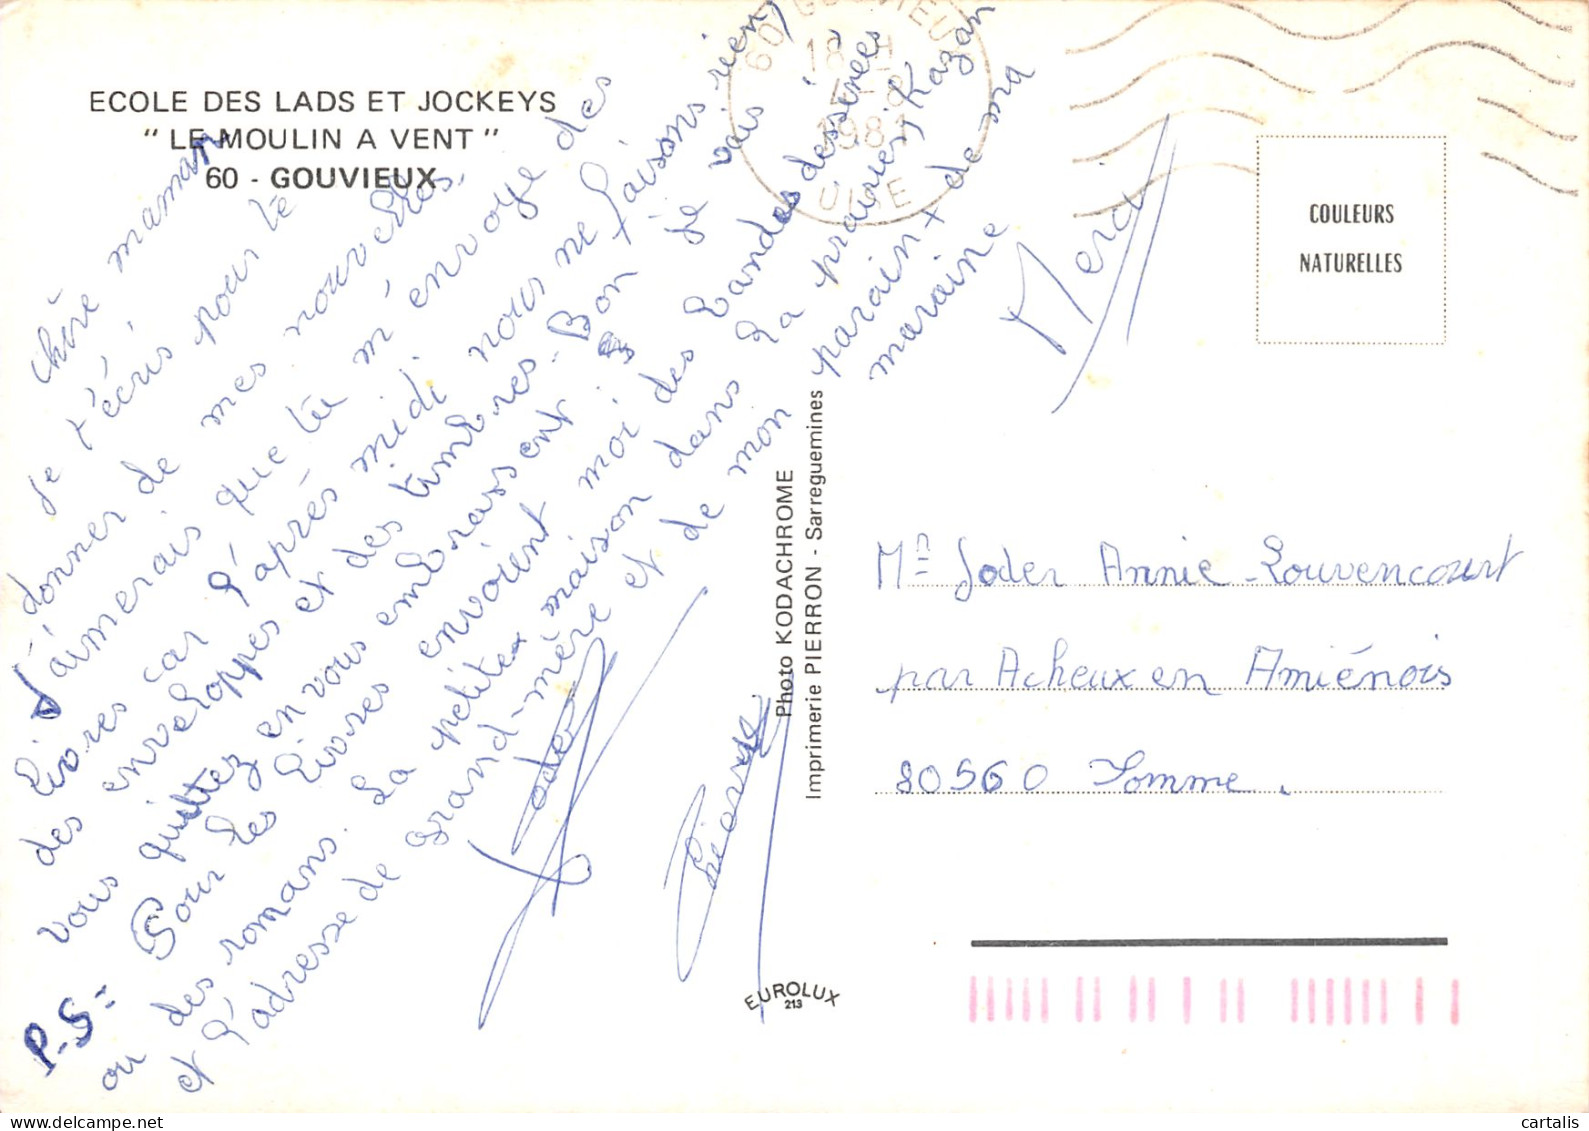 ECOLE DES LADS ET JOCKEYS
" LE MOULIN A VENT "
60 - GOUVIEUX
chère maman
Je t'écris pour te
donner de mes nouvelles.
J'aimerais que tu m'envoye des
livres car l'après midi nous ne faisons rien,
des enveloppes et des timbres. Bon je vais
vous quittez en vous embrassent
P.S= Pour les livres envoient moi des bandes dessinées
ou des romans. La petite maison dans la prairie, Kazan
et l'adresse de grand-mère et de mon parain + de ma
maraine
Merci
Soder
Pierre
60 GOUVIEUX
18 H
198
OISE
COULEURS
NATURELLES
Photo KODACHROME
Imprimerie PIERRON - Sarreguemines
EUROLUX
213
Mme Soder Annie Louvencourt
par Acheux en Amiénois
80560 Somme.
cartalis